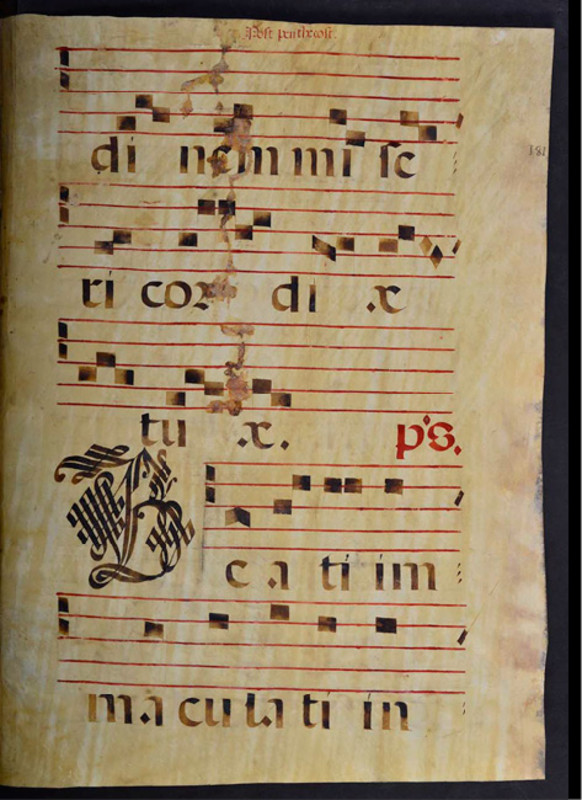 Post pentecost.
181
di nem mi se
ri cor di æ
tu æ.
ps.
B e a ti im
ma cu la ti in